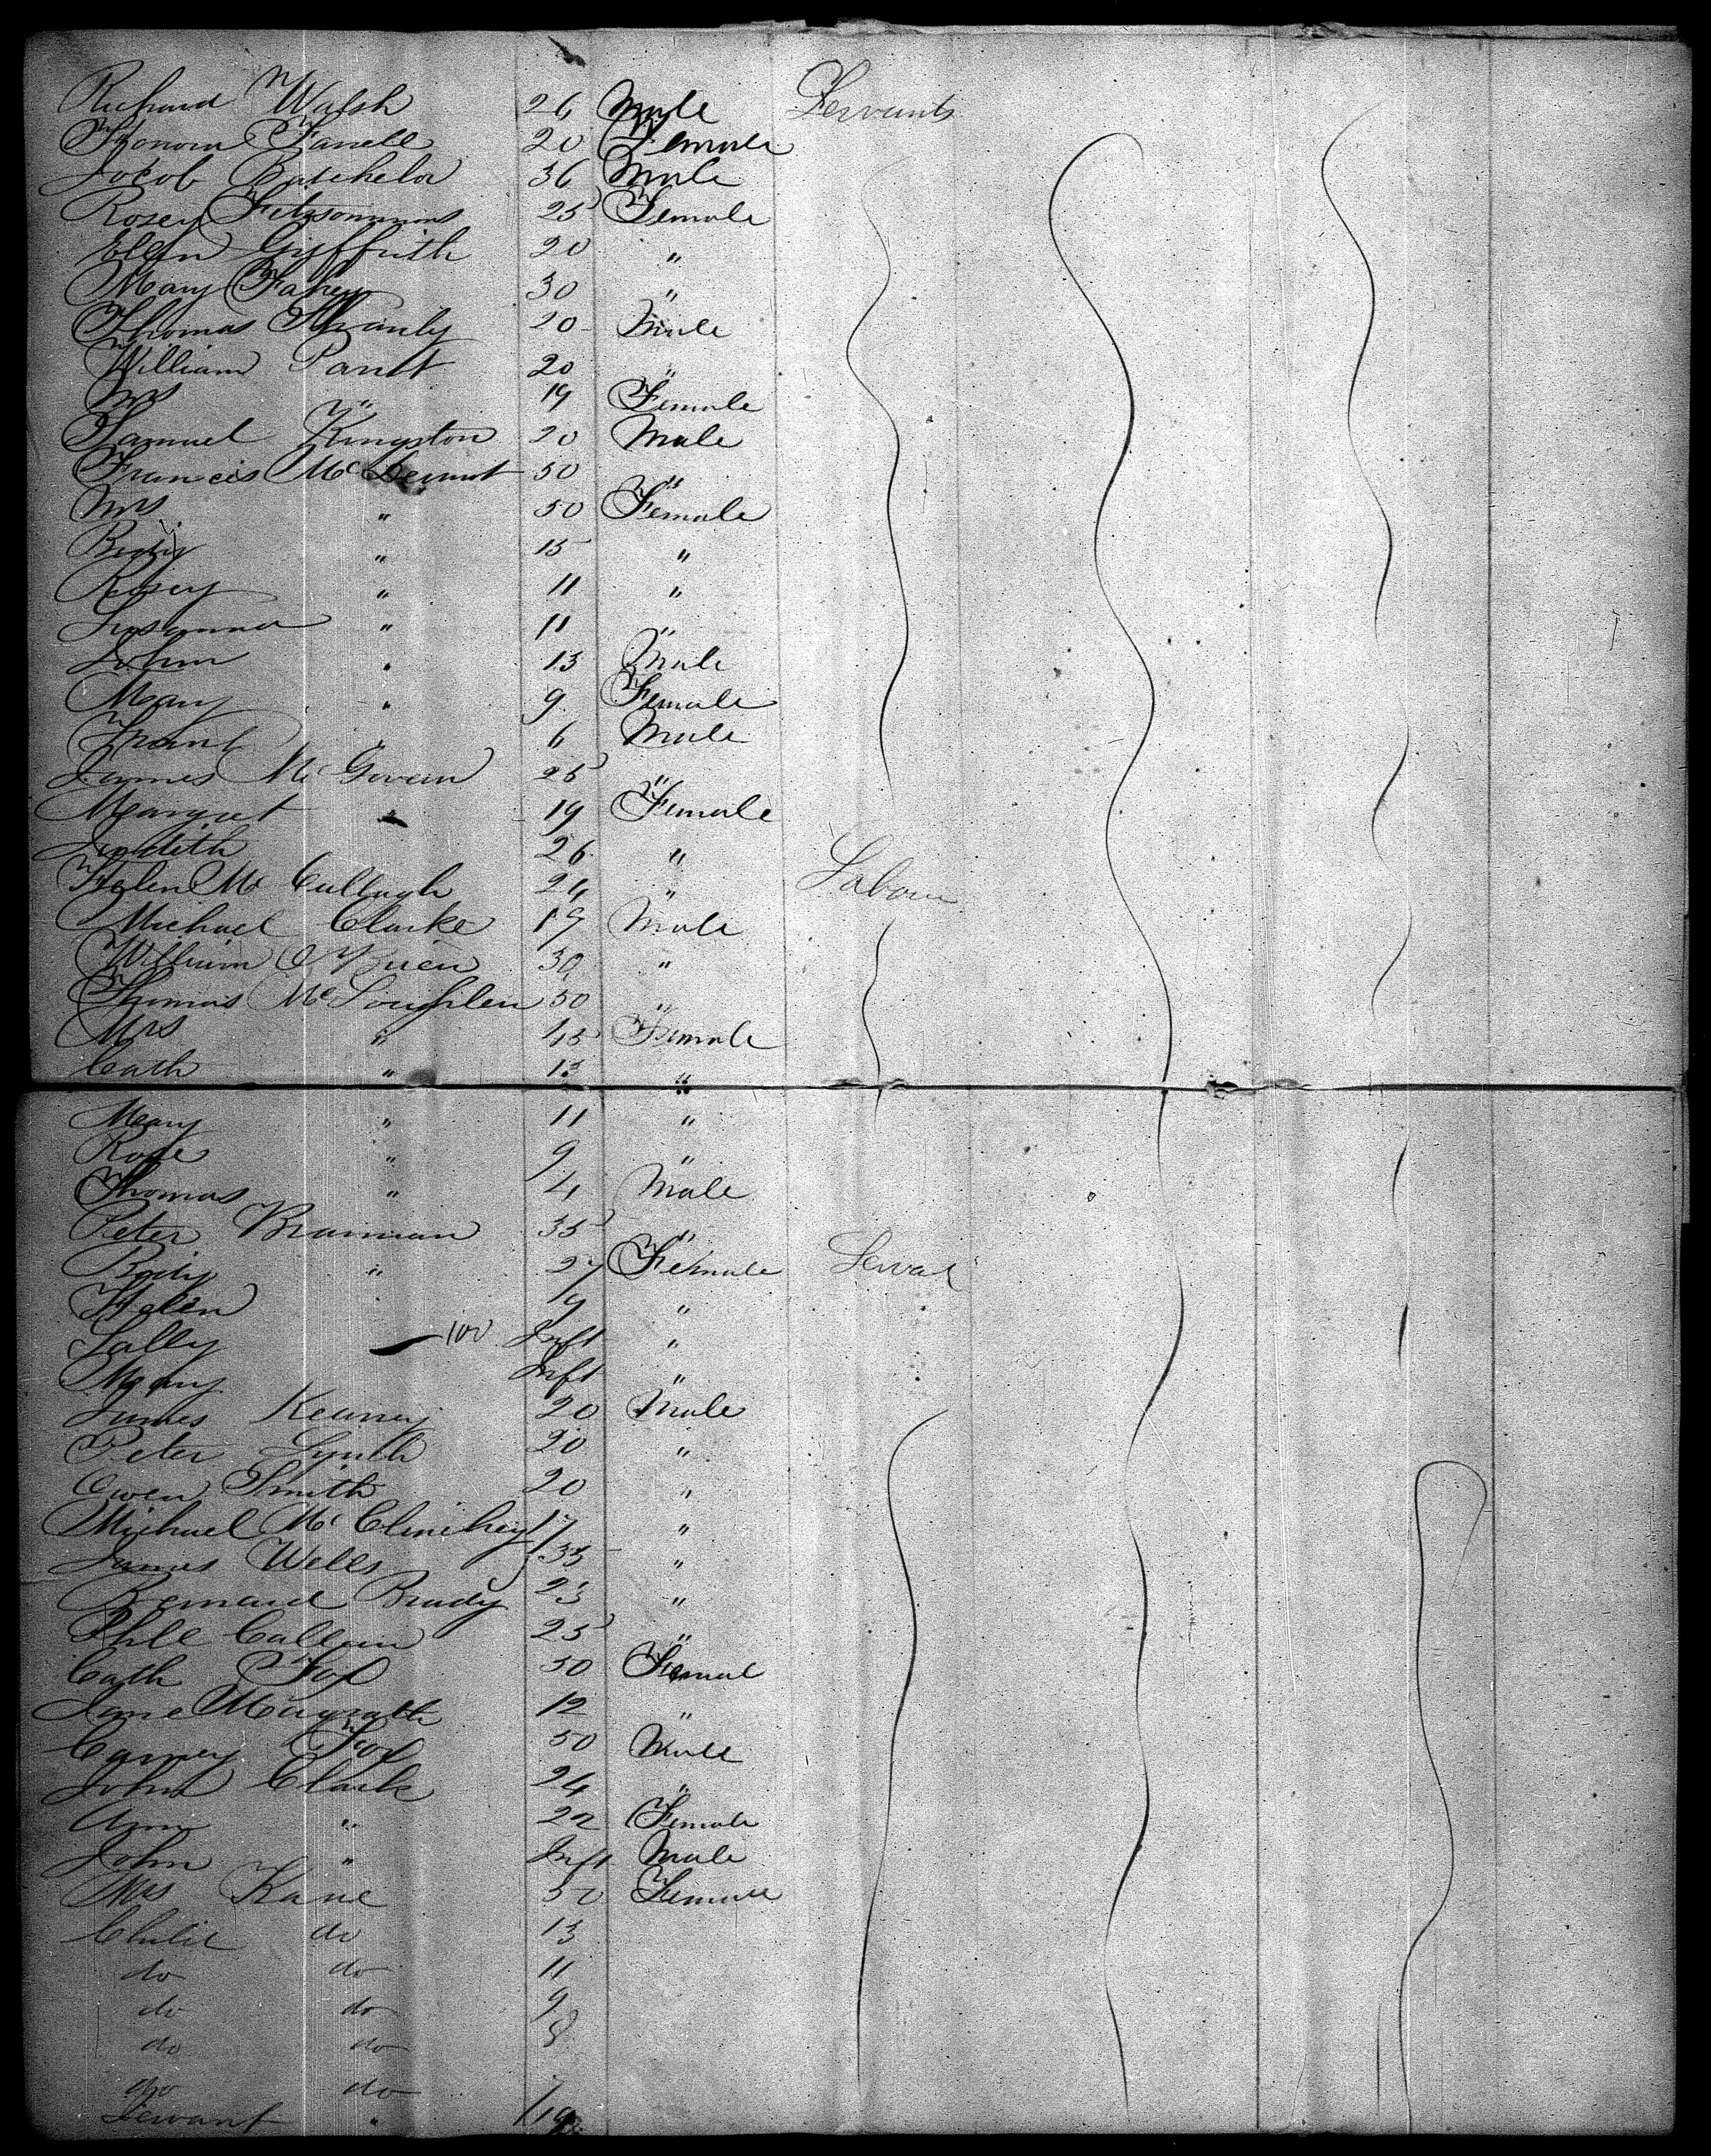 Richard Walsh 26 Male Servants
Honora Farrell 20 Female
Jacob Batchelor 36 Male
Rosey Fitzsommons 25 Female
Ellen Gryffrith 20 "
Mary Fahey 30 "
Thomas 20 Male
William 20 "
Mrs " 19 Female
Samuel Kingston 20 Male
Francis Mc Dermot 50 "
Mrs " 50 Female
Bridy " 15 "
Rosey " 11 "
Susanna " 11 "
John " 13 Male
Mary " 9 Female
Frank " 6 Male
James Mc Govern 25 "
Margret " 19 Female
Judith 26 "
Helen Mc Cullagh 24 " Labour
Michael Clarke 19 Male
William 30 "
Thomas Mc Loughlen 50 "
Mrs " 45 Female
Cath " 13 "
Mary " 11 "
Rose " 9 "
Thomas " 4 Male
Peter Brannan 35 "
Bridy " 27 Female Servat
Helen " 19 "
Sally 100 Inft "
Mary Inft "
James Kearney 20 Male
Peter Lynch 20 "
Owen Smith 20 "
Michael Mc Clinchey 17 "
James Wells 35 "
Bernard Brady 23 "
Phil 25 "
Cath Fox 50 Femal
Jane Magrath 12 "
Carney Fox 50 Male
John Clark 24 "
Ann " 22 Female
John " Inft Male
Mrs Kane 50 Female
Child do 13
do do 11
do do 9
do do 8
do do
Servant "